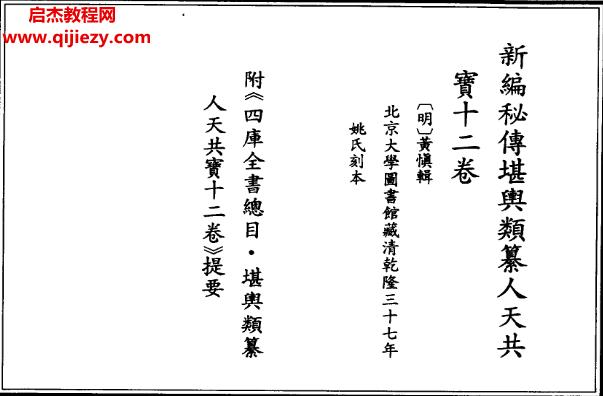 启杰教程网
www.qijiezy.com
新編秘傳堪輿類纂人天共
寶十二卷
〔明〕黃愼輯
北京大學圖書館藏清乾隆三十七年
姚氏刻本
附《四庫全書總目·堪輿類纂
人天共寶十二卷》提要